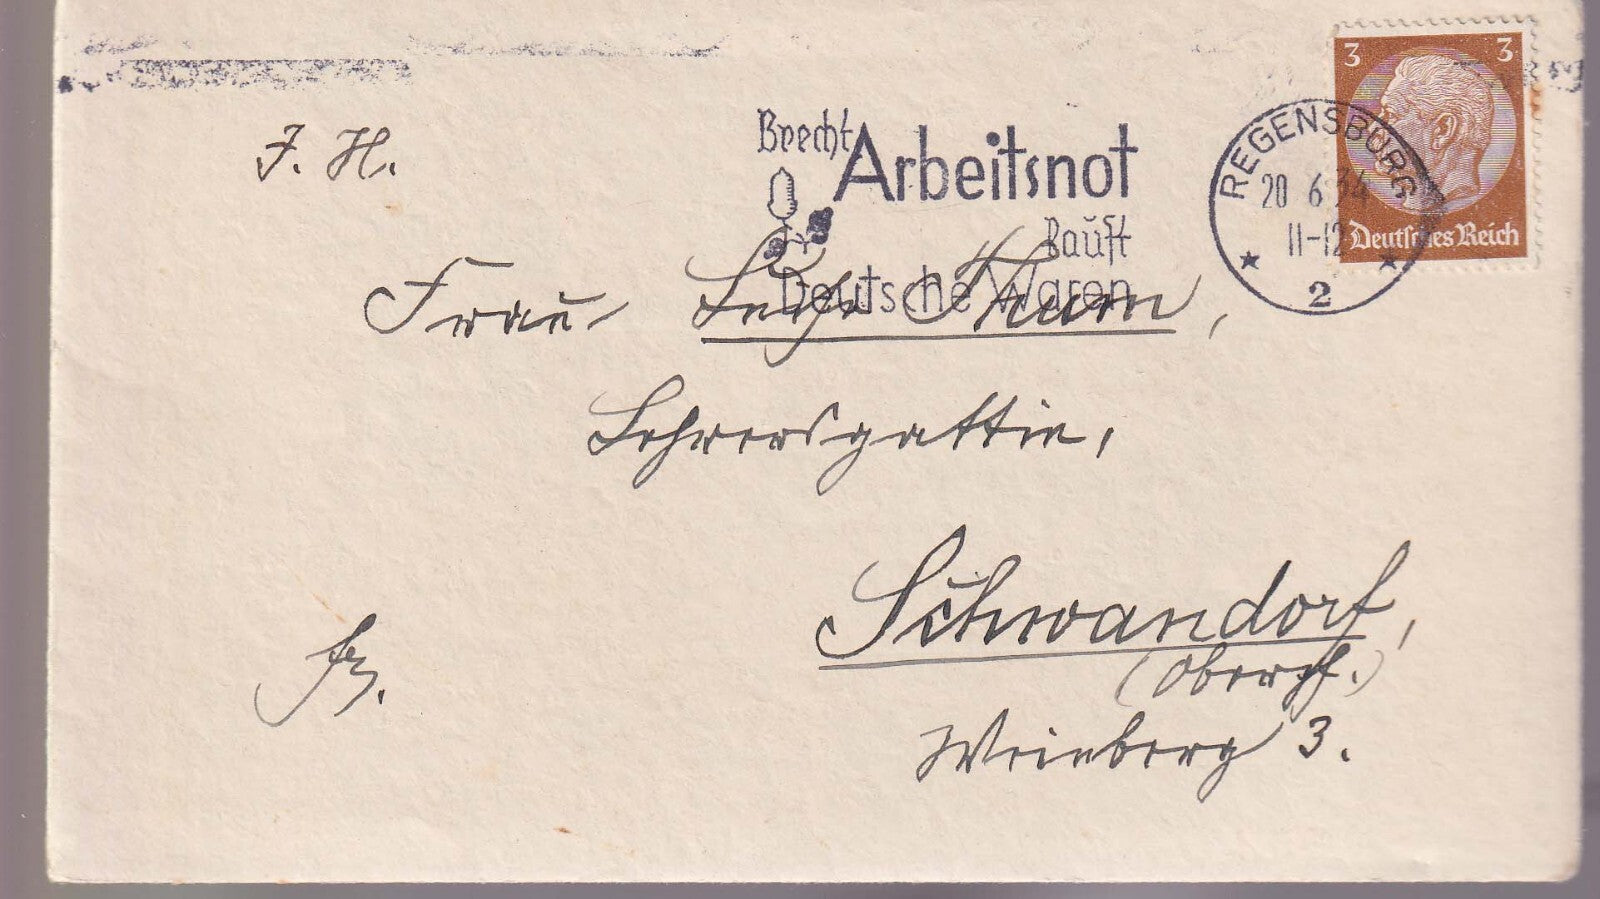 3 3
J. H.
Brecht
Arbeitsnot
kauft
Deutsche Waren
REGENSBURG
20 6 34
11-12
2
Deutsches Reich
Frau Thum,
Lehrersgattin,
Schwandorf,
(Oberpf.)
Weinberg 3.